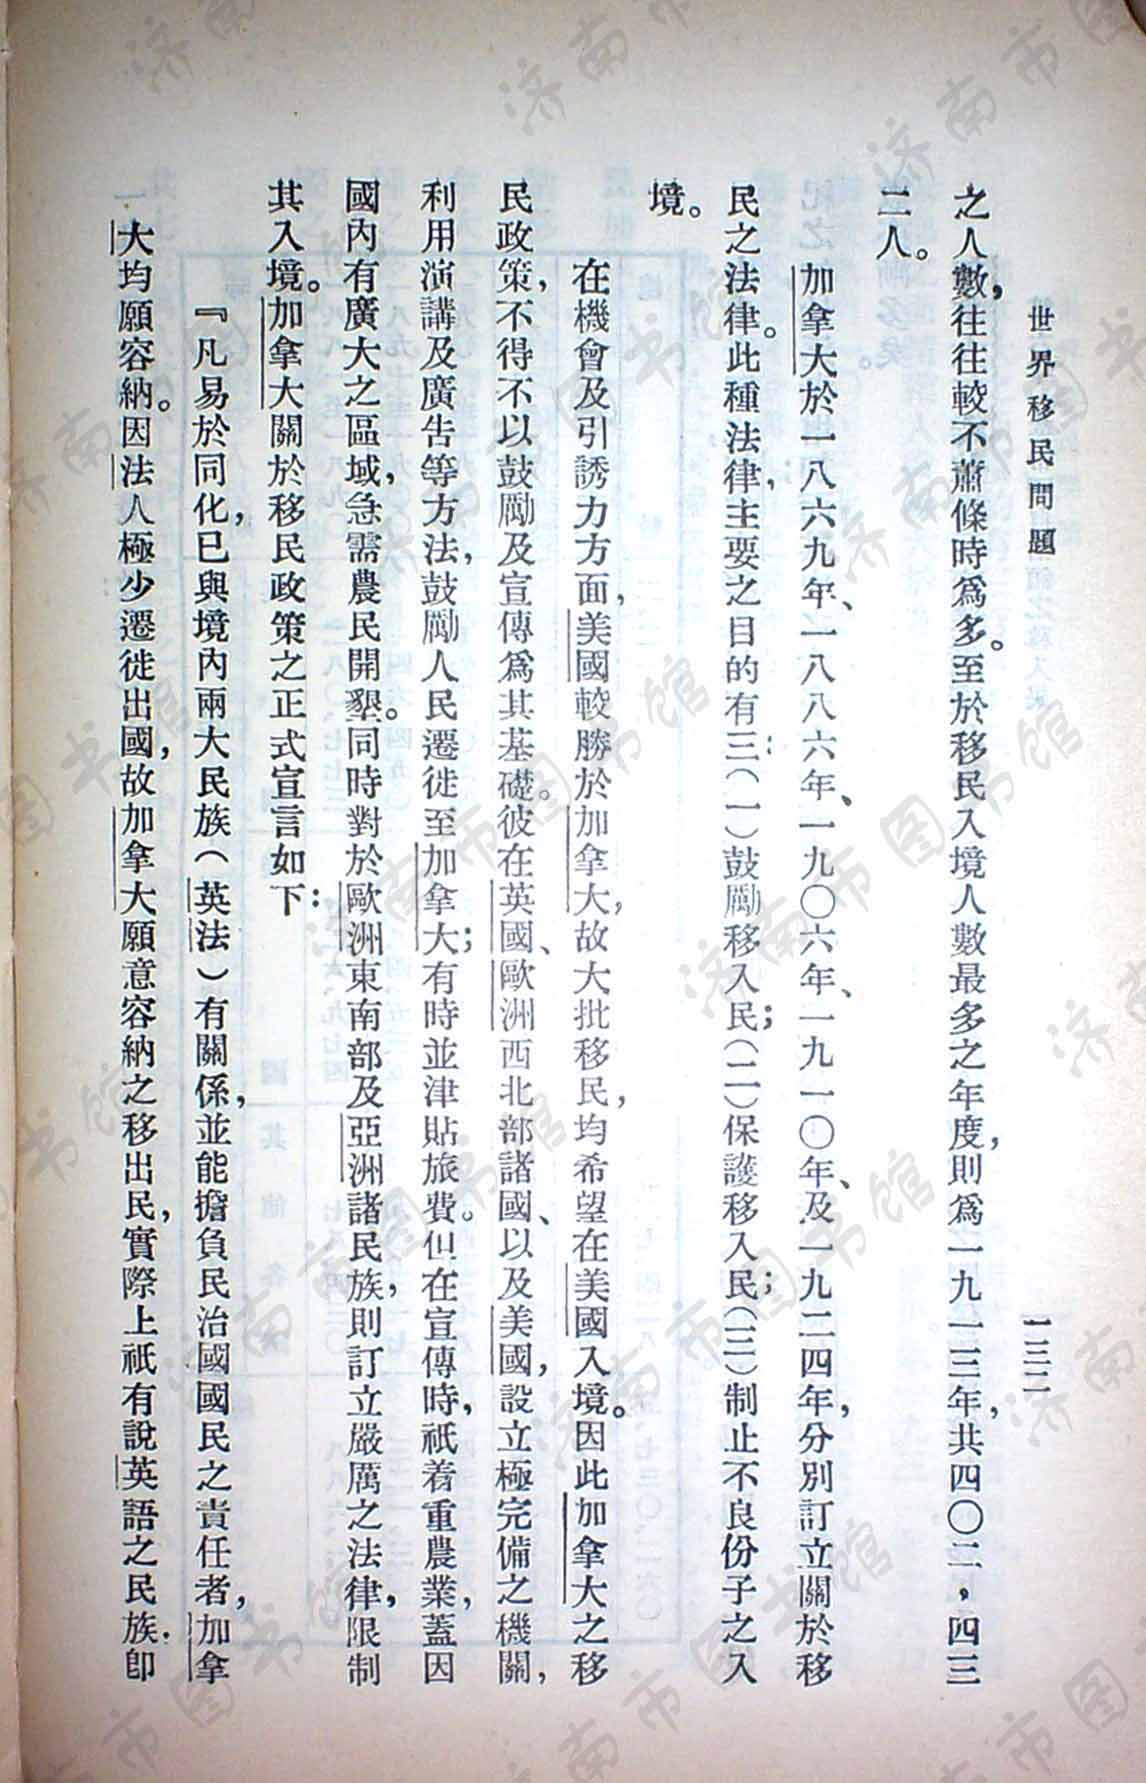 世界移民問題
一三二
之人數，往往較不蕭條時爲多。至於移民入境人數最多之年度，則爲一九一三年，共四〇二，四三
二人。
加拿大於一八六九年、一八八六年、一九〇六年、一九一〇年、及一九二四年，分別訂立關於移
民之法律。此種法律，主要之目的有三：（一）鼓勵移入民；（二）保護移入民；（三）制止不良份子之入
境。
在機會及引誘力方面，美國較勝於加拿大，故大批移民，均希望在美國入境。因此加拿大之移
民政策，不得不以鼓勵及宣傳爲其基礎。彼在英國、歐洲西北部諸國、以及美國，設立極完備之機關，
利用演講及廣告等方法，鼓勵人民遷徙至加拿大；有時並津貼旅費。但在宣傳時，祇着重農業，蓋因
國內有廣大之區域，急需農民開墾。同時對於歐洲東南部及亞洲諸民族，則訂立嚴厲之法律，限制
其入境。加拿大關於移民政策之正式宣言如下：
『凡易於同化，已與境內兩大民族（英法）有關係，並能擔負民治國國民之責任者，加拿
大均願容納。因法人極少遷徙出國，故加拿大願意容納之移出民，實際上祇有說英語之民族。卽
济南市图书馆